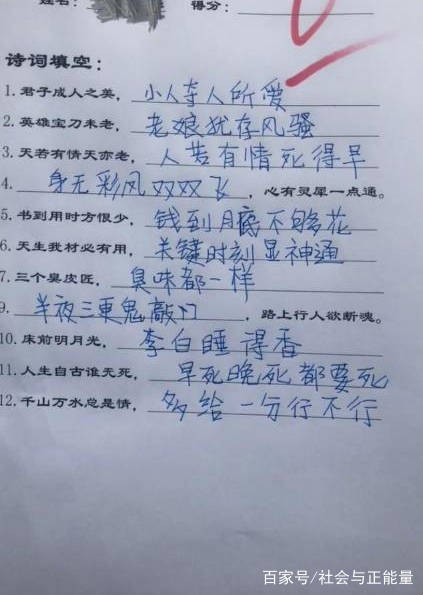 姓名： 得分：
诗词填空：
1. 君子成人之美，小人夺人所爱
2. 英雄宝刀未老，老娘犹存风骚
3. 天若有情天亦老，人若有情死得早
4. 身无彩凤双双飞，心有灵犀一点通。
5. 书到用时方恨少，钱到月底不够花
6. 天生我材必有用，关键时刻显神通
7. 三个臭皮匠，臭味都一样
9. 半夜三更鬼敲门，路上行人欲断魂。
10. 床前明月光，李白睡得香
11. 人生自古谁无死，早死晚死都要死
12. 千山万水总是情，多给一分行不行
百家号/社会与正能量